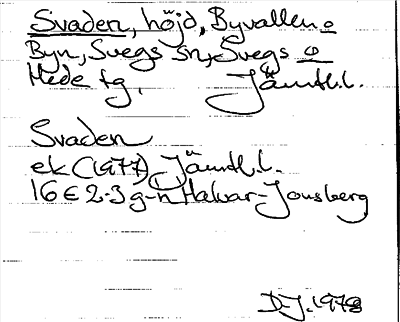 Svaden, höjd, Byvallen o
Byn, Svegs sn, Svegs o
Hede tg, Jämtl.l.
Svaden
ek (1977) Jämtl.l.
16E 2-3 g-h Halvar-Jonsberg
D.J. 1978